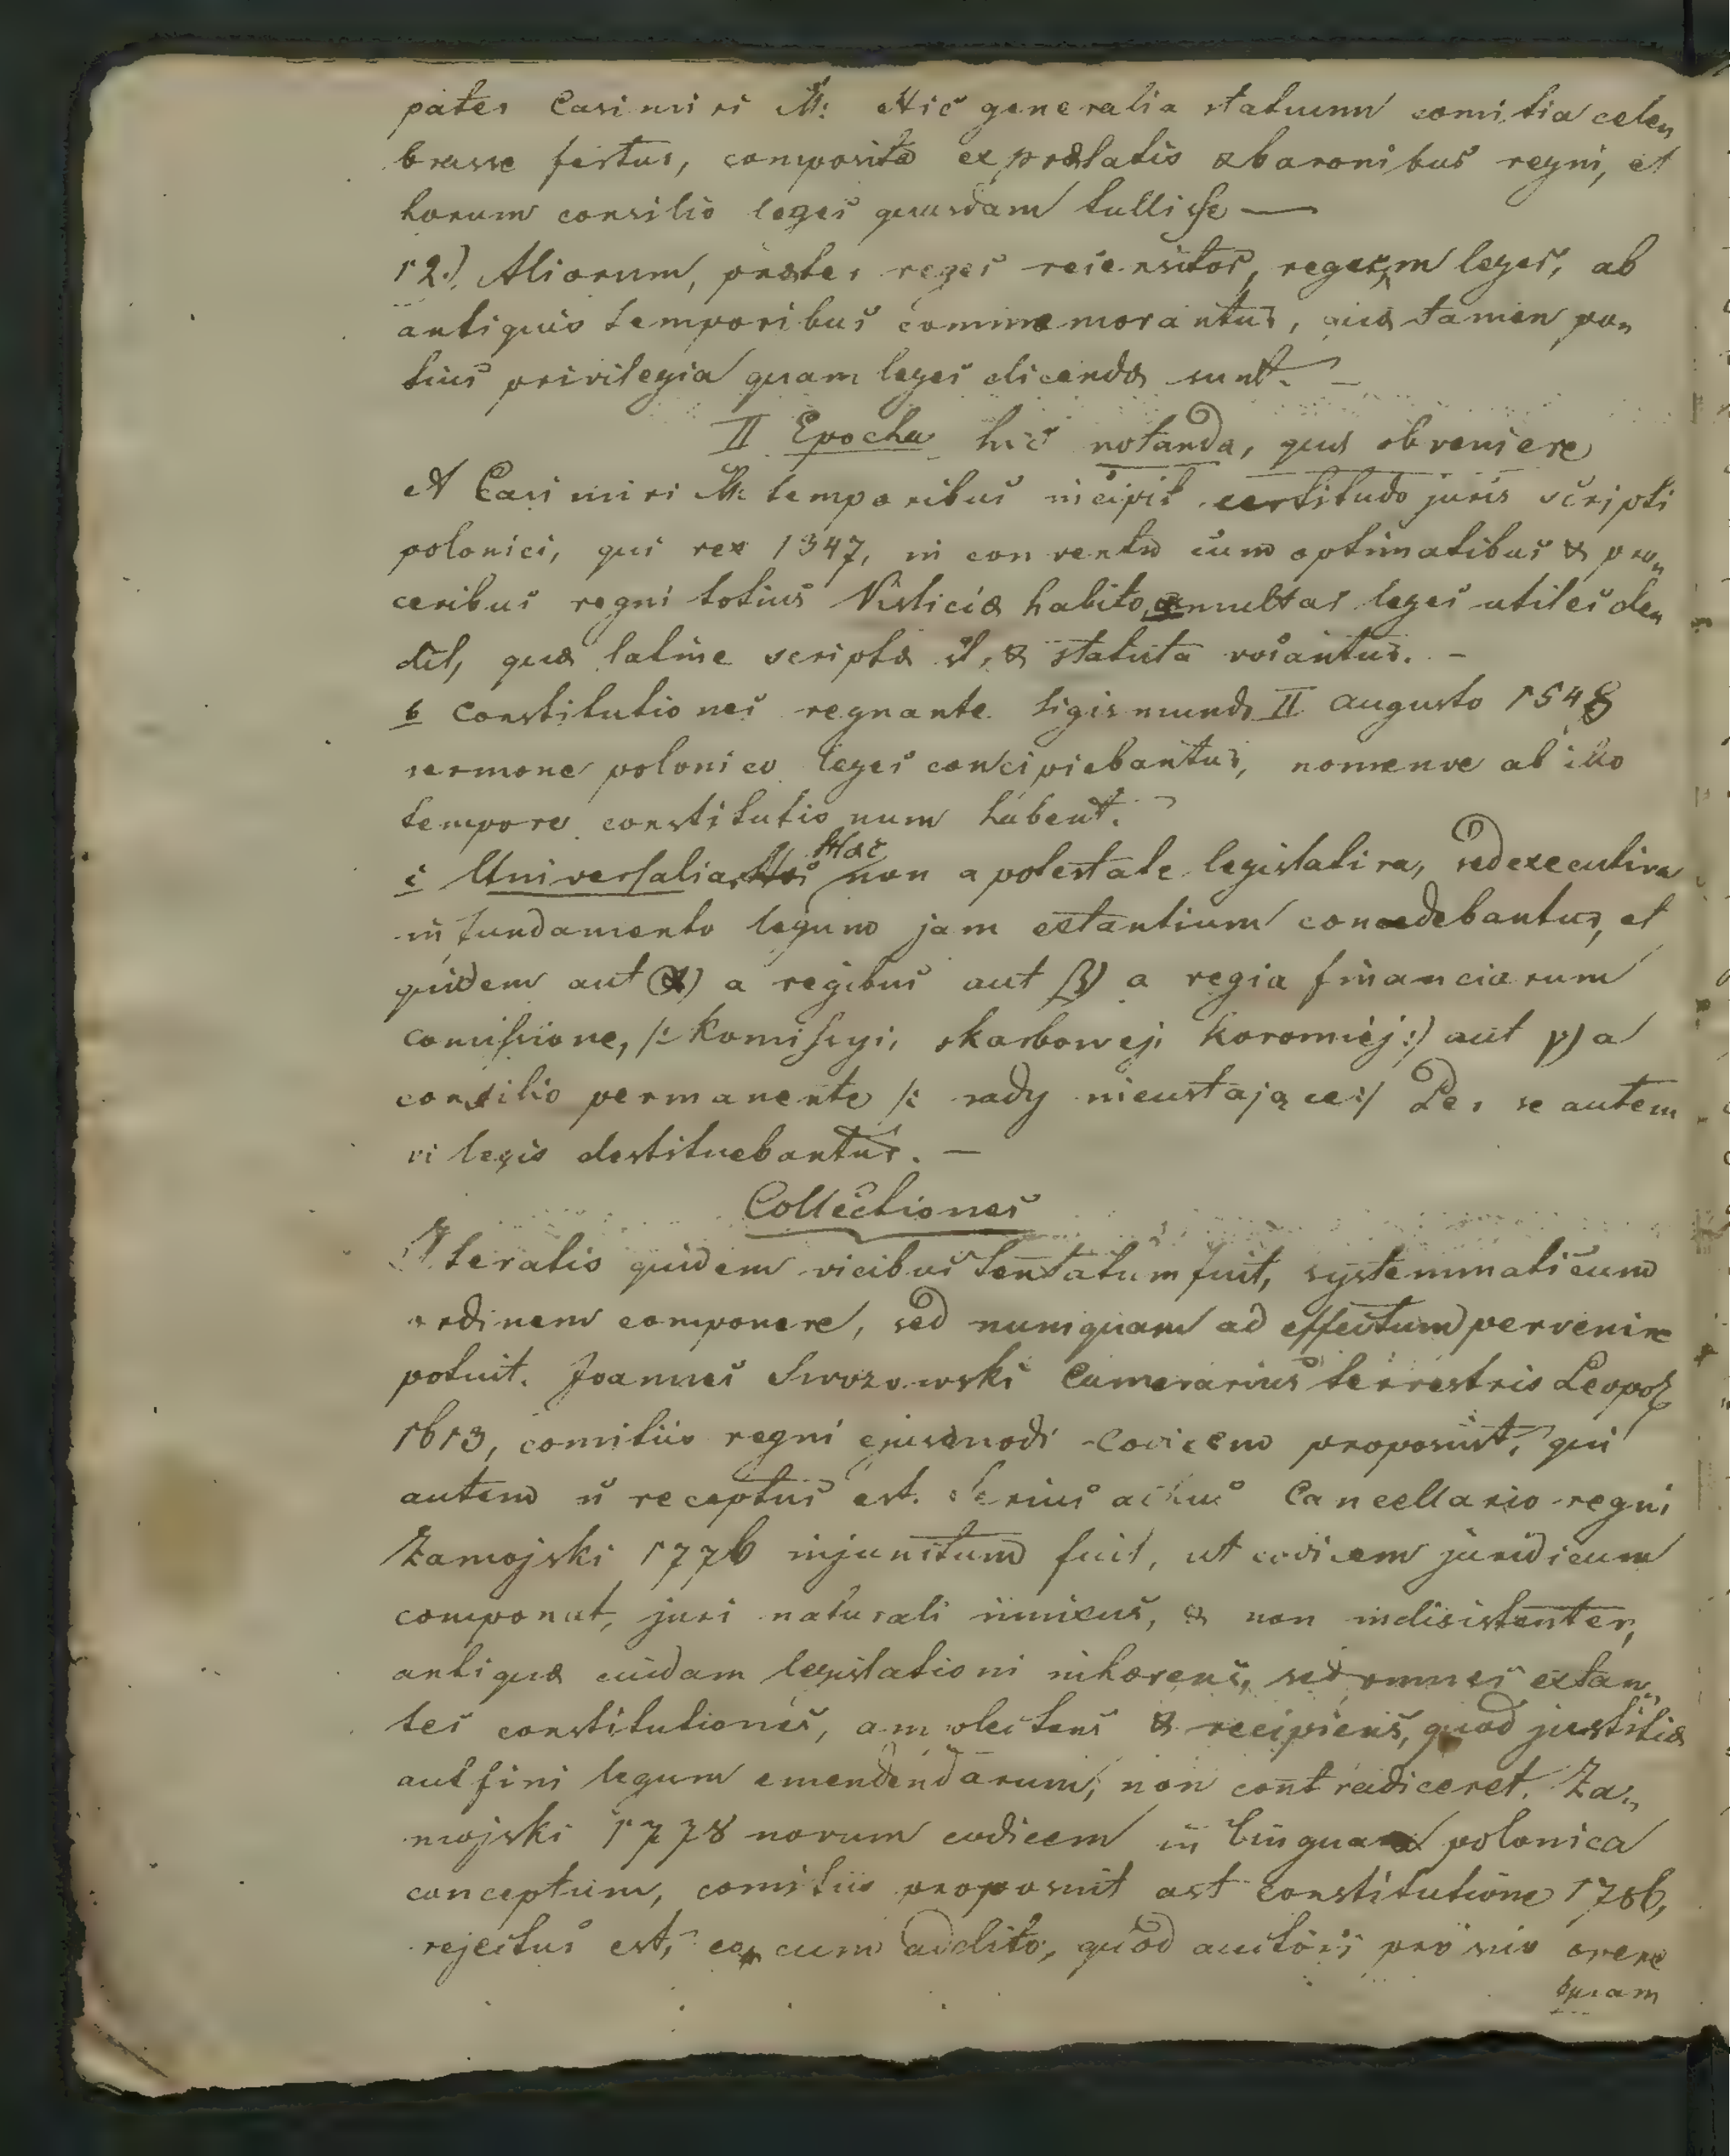 pater Casimiri M: Hic generalia statuum comitia cele„
brasse fertur, composita ex prælatis & baronibus regni, et
horum consilio leges quasdam tullisse —
12.) Aliorum, præter reges recensitos, regum leges, ab
antiquis temporibus commemorantur, quæ tamen po„
tius privilegia quam leges dicendæ sunt. —
II Epocha hic notanda, quæ obveniere
A Casimiri M: temporibus incipit certitudo juris scripti
polonici, qui rex 1347, in conventu cum optimatibus & pro„
ceribus regni totius Visliciæ habito, multas leges utiles de„
dit, quæ latine scriptæ st, & statuta vocantur. —
b Constitutiones regnante Sigismundo II augusto 1548
sermone polonico leges concipiebantur, nomenve ab illo
tempore constitutionum habent.
c Universalia, Hæc non a potestate legislativa, sed executiva
in fundamento legum jam extantium concedebantur, et
quidem aut α) a regibus aut β) a regia financiarum
comissione, /: Komissyi, skarbowej, koronnéj :/ aut γ) a
consilio permanente /: rady nieustającej :/ Per se autem
vi legis destituebantur. —
Collectiones
Iteratis quidem vicibus tentatum fuit, systemmaticum
ordinem componere, sed numquam ad effectum pervenire
potuit. Joannes Swozowski Camerarius terrestris Leopol
1613, comitiis regni ejusmodi codicem proposuit, qui
autem n receptus est. Serius adhuc Cancellario regni
Zamojski 1776 injunctum fuit, ut codicem juridicum
componat, juri naturali innixus, & non indisistenter,
antiquæ cuidam legislationi inhærens, sed omnes extan„
tes constitutiones, amplectens & recipiens, quod justitiæ
aut fini legum emendendarum, non contradiceret. Za„
mojski 1778 novum codicem in lingua polonica
conceptum, comitiis proposuit ast constitutione 1780,
rejectus est, eo cum addito, quod auctori pro suo opere
quam